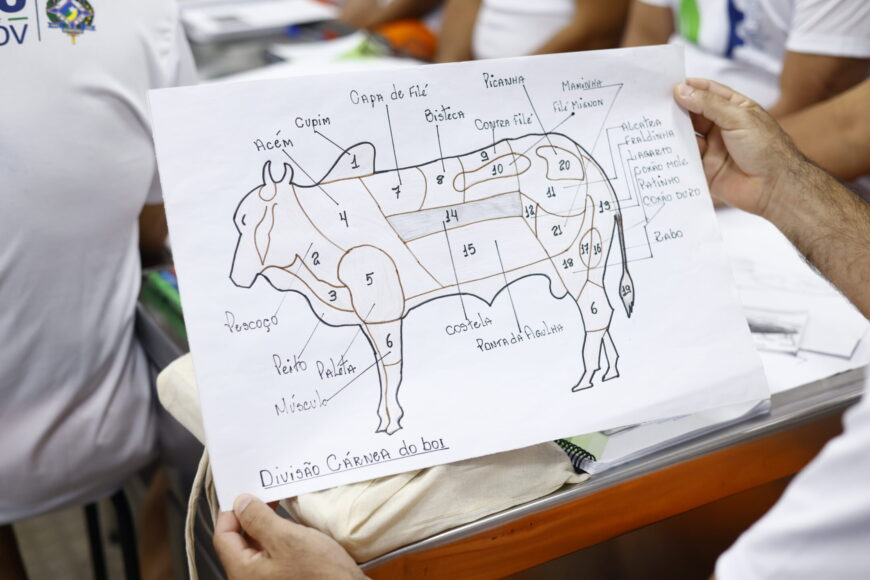 OV
PICANHA
MAMINHA
CAPA DE FILÉ
FILÉ MIGNON
CUPIM
BISTECA
CONTRA FILÉ
ACÉM
ALCATRA
FRALDINHA
LAGARTO
COXÃO MOLE
PATINHO
COXÃO DURO
RABO
1
9
10
20
7
8
4
11
14
12
19
2
21
15
5
17
16
18
3
6
19
6
PESCOÇO
COSTELA
PONTA DA AGULHA
PEITO
PALETA
MÚSCULO
DIVISÃO CÁRNEA DO BOI